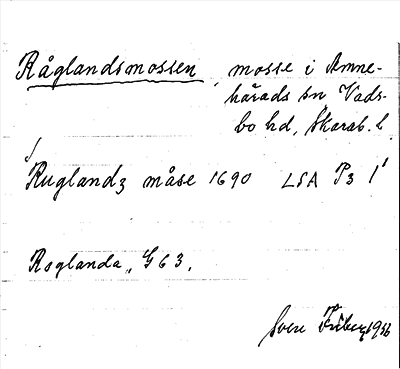 Råglandsmossen, mosse i Amne-
härads sn, Vads-
bo hd, Skarab. l.
Ruglandz måse 1690 LSA P3 1'
Roglanda, G 63.
Sven Friberg 1956